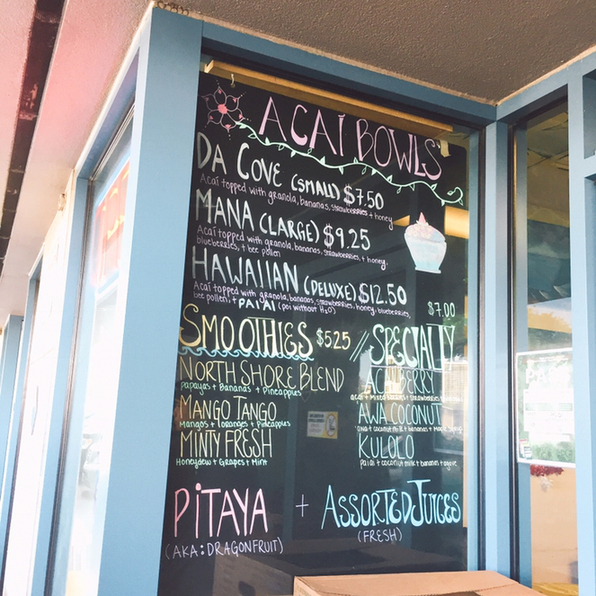 ACAÍ BOWLS
DA COVE (SMALL) $7.50
Acaí topped with granola, bananas, strawberries, + honey
MANA (LARGE) $9.25
Acaí topped with granola, bananas, strawberries, + honey,
blueberries, + bee pollen
HAWAIIAN (DELUXE) $12.50
Acaí topped with granola, bananas, strawberries, honey, blueberries,
bee pollen, + PAI'AI (poi without H2O)
SMOOTHIES $5.25
NORTH SHORE BLEND
Papayas + Bananas + Pineapples
MANGO TANGO
Mangos + Oranges + Pineapples
MINTY FRESH
Honeydew + Grapes + Mint
$7.00
// SPECIALTY
ACAIBERRY
AWA COCONUT
KULOLO
paiai + coconut milk + bananas + agave
PITAYA
(AKA: DRAGONFRUIT)
+ ASSORTED JUICES
(FRESH)